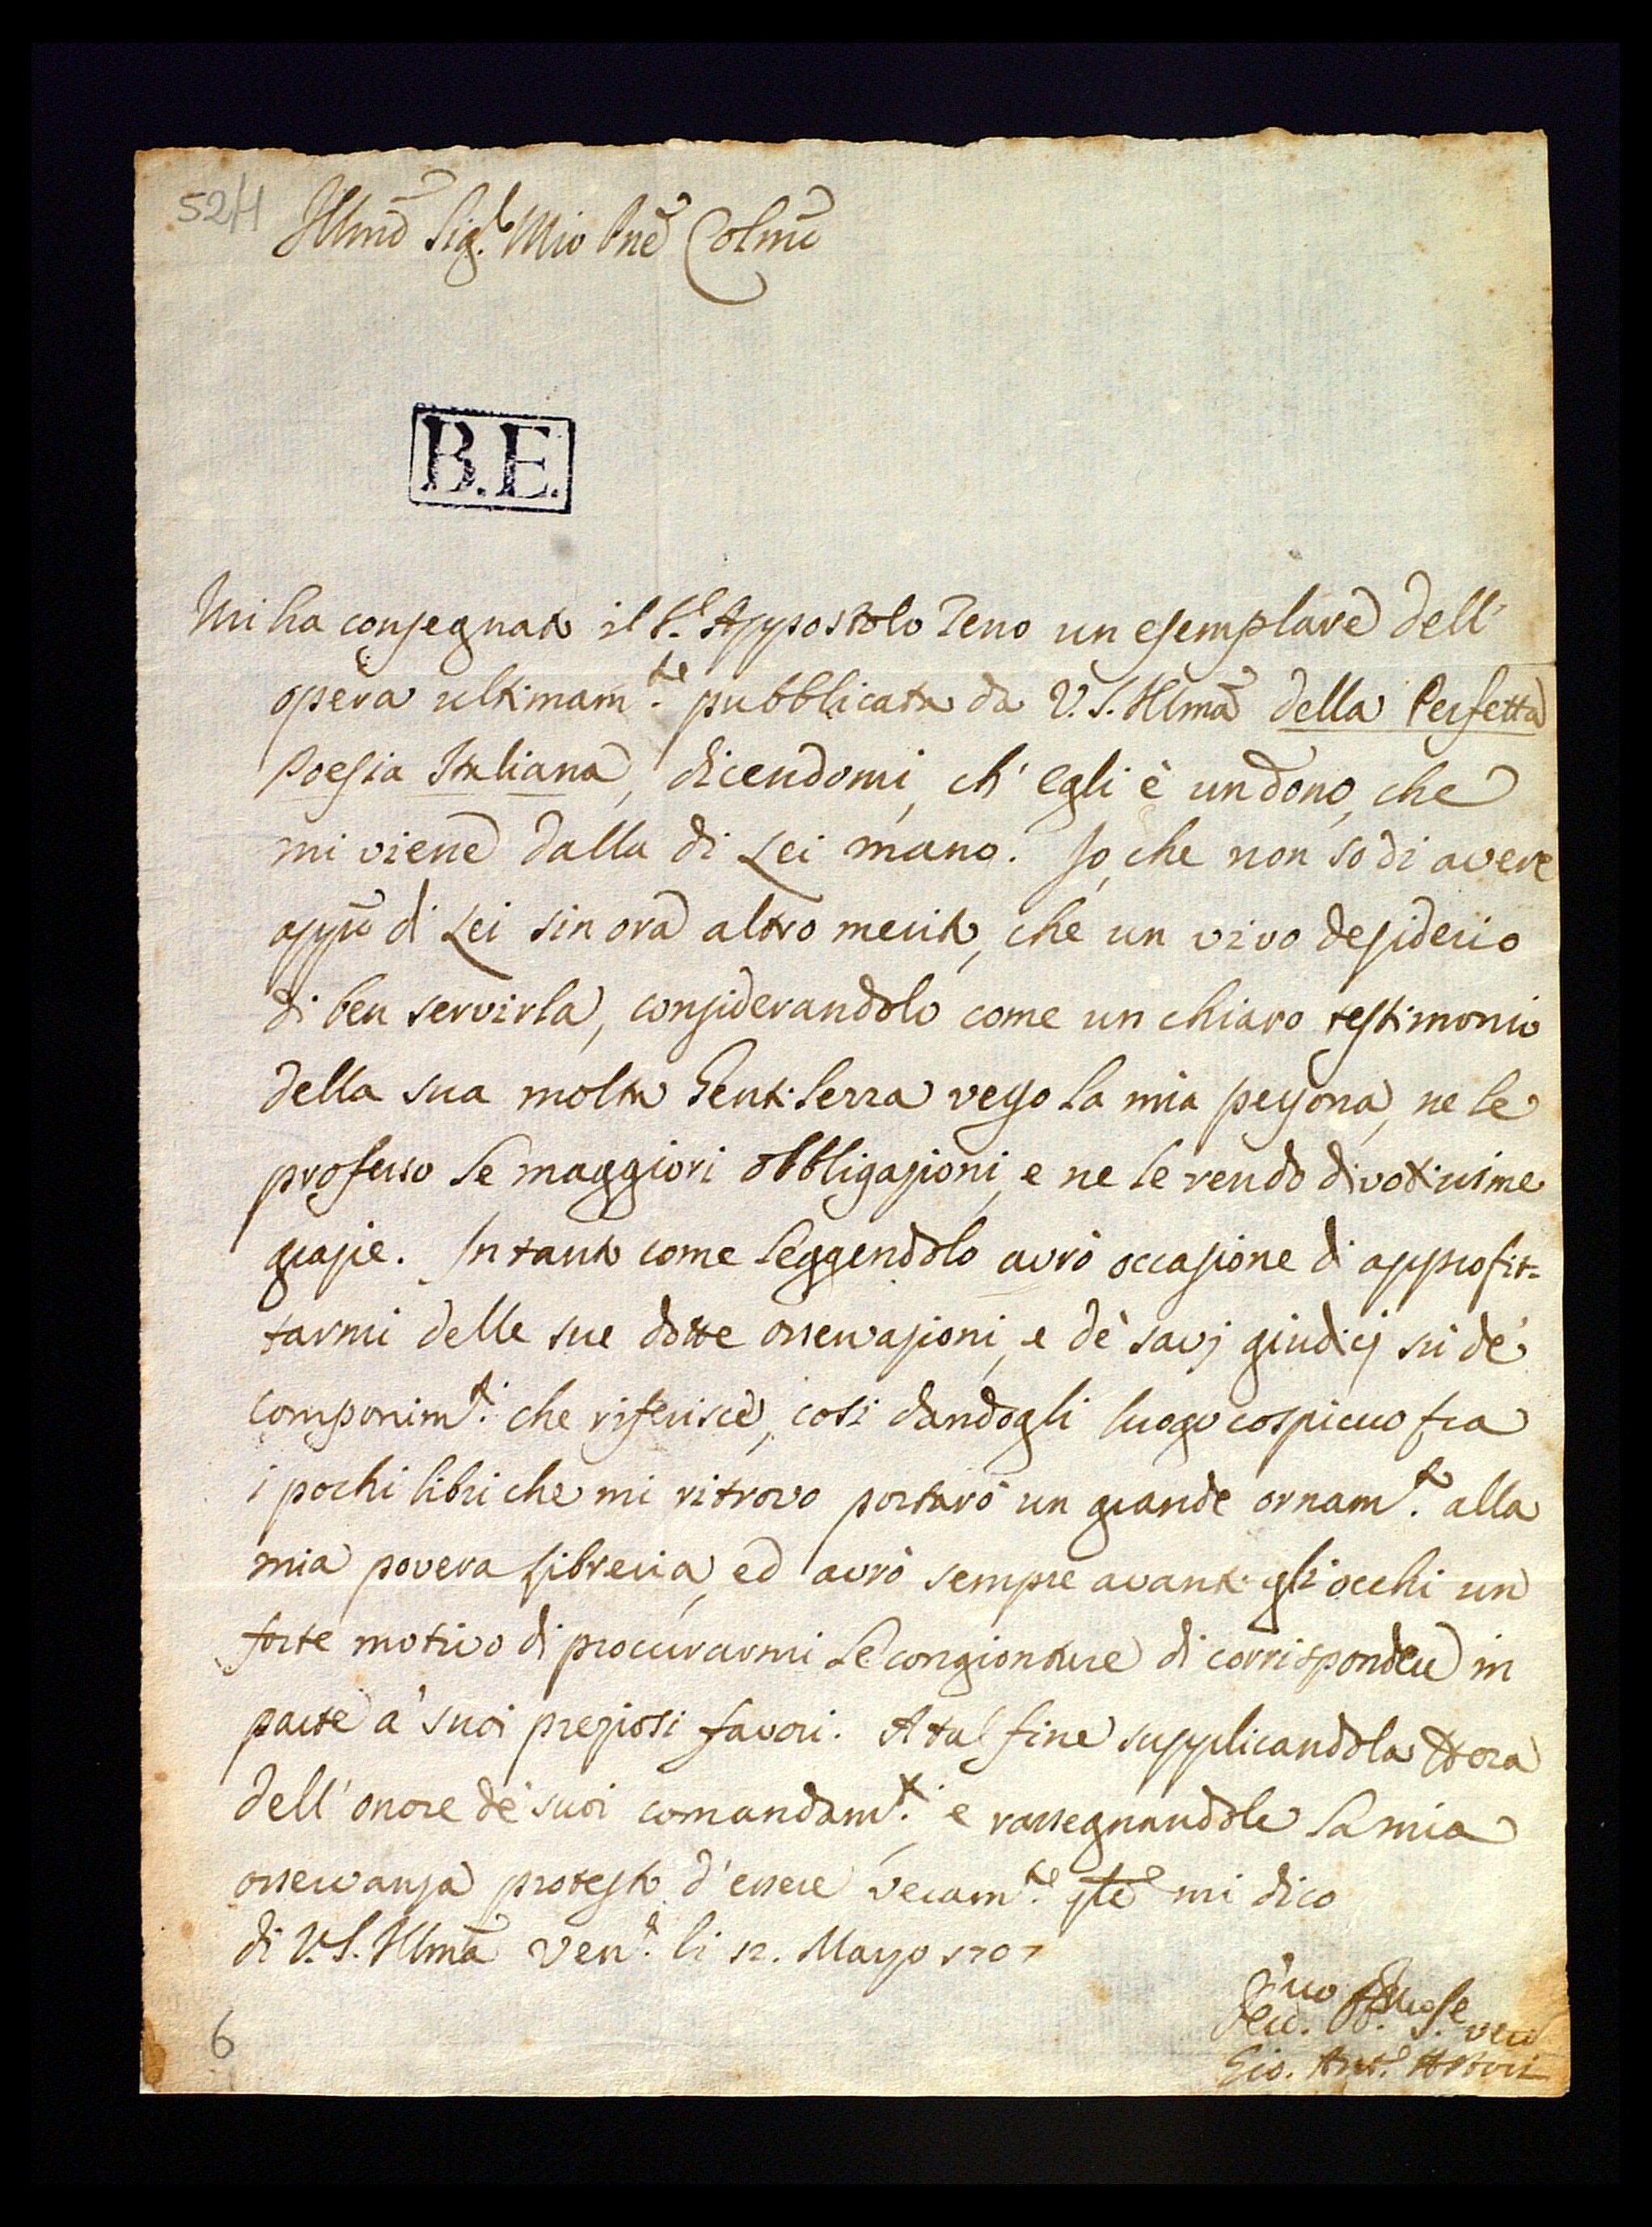 52/1
Illmo Sig.r Mio Pne Colmo
B.E.
Mi ha consegnato il S.r Appostolo Zeno un esemplare dell'
opera ultimam.te pubblicata da V.S. Illma della Perfetta
Poesia Italiana, dicendomi, ch' egli è un dono, che
mi viene dalla di Lei mano. Io, che non so di avere
appo di Lei sin ora altro merito, che un vivo desiderio
di ben servirla, considerandolo come un chiaro testimonio
della sua molta Gentilezza verso la mia persona, ne le
professo le maggiori obbligazioni, e ne le rendo divotissime
grazie. In tanto come leggendolo avrò occasione di approfit=
tarmi delle sue dotte osservazioni, e de' savj giudicj sù de'
componim.ti che riferisce, così dandogli luogo cospicuo fra
i pochi libri che mi ritrovo portarò un grande ornam.to alla
mia povera Libreria, ed avrò sempre avanti gli occhi un
forte motivo di procurarmi le congionture di corrispondere in
parte a' suoi preziosi favori. A tal fine supplicandola
dell' onore de' suoi comandam.ti, e rassegnandole la mia
osservanza protesto d' essere veram.te mi dico
di V.S. Illma Ven.a li 12. Marzo 1707
Gio. Ant.o Astori
6